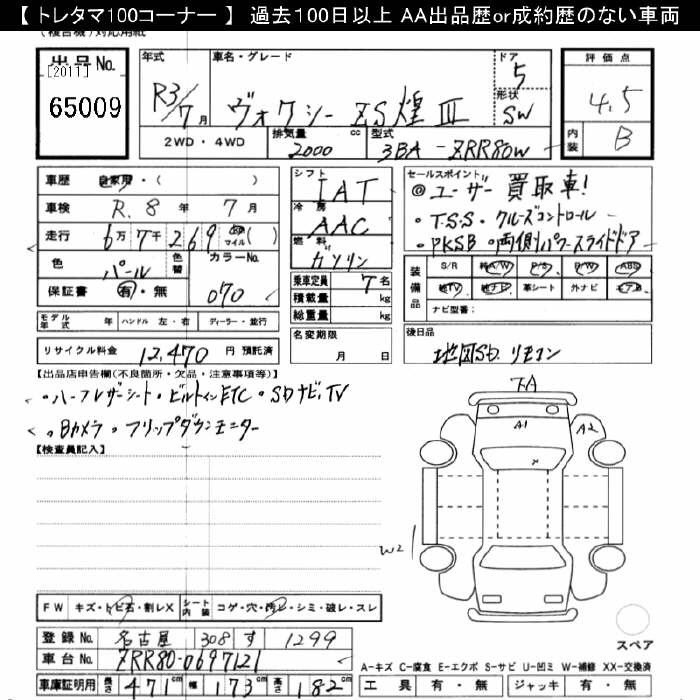 【 トレタマ100コーナー 】 過去100日以上 AA出品歴or成約歴のない車両
(複合機)対応用紙
出品No.
[2011]
65009
年式 車名・グレード ドア 5 評価点
R3/7月 ヴォクシー ZS煌Ⅲ 形状 SW 4.5
2WD・4WD 排気量 2000 cc 型式 3BA-ZRR80W 内装 B
車歴 自家用・( )
車検 R. 8 年 7 月
走行 6万 7千 269 km マイル ( )
色 パール 色替 カラーNo.
保証書 有・無 070
モデル年式 年 ハンドル 左・右 ディーラー・並行
リサイクル料金 12,470 円 預託済
シフト IAT
冷房 AAC
燃料 ガソリン
乗車定員 7名
積載量 kg
総重量 kg
名変期限
月 日
セールスポイント
◎ユーザー買取車!
・T.S.S・クルーズコントロール
・PKSB ・両側パワースライドドア
装備品 S/R 純A/W P/S P/W ABS
純TV 純ナビ 革シート 外ナビ エアB
ナビ型番:
後日品
地図SD. リモコン
【出品店申告欄(不良箇所・欠品・注意事項等)】
・ハーフレザーシート・ビルトインETC ・SDナビ.TV
・Bカメラ ・フリップダウンモニター
【検査員記入】
A1 A2
W2
FW キズ・トビ石・割レX シート内装 コゲ・穴・汚レ・シミ・破レ・スレ
登録No. 名古屋 308 す 1299
車台No. ZRR80-0697121
車庫証明用 長さ 471cm 幅 173cm 高さ 182cm
スペア
A-キズ C-腐食 E-エクボ S-サビ U-凹ミ W-補修 XX-交換済
工具 有・無 ジャッキ 有・無